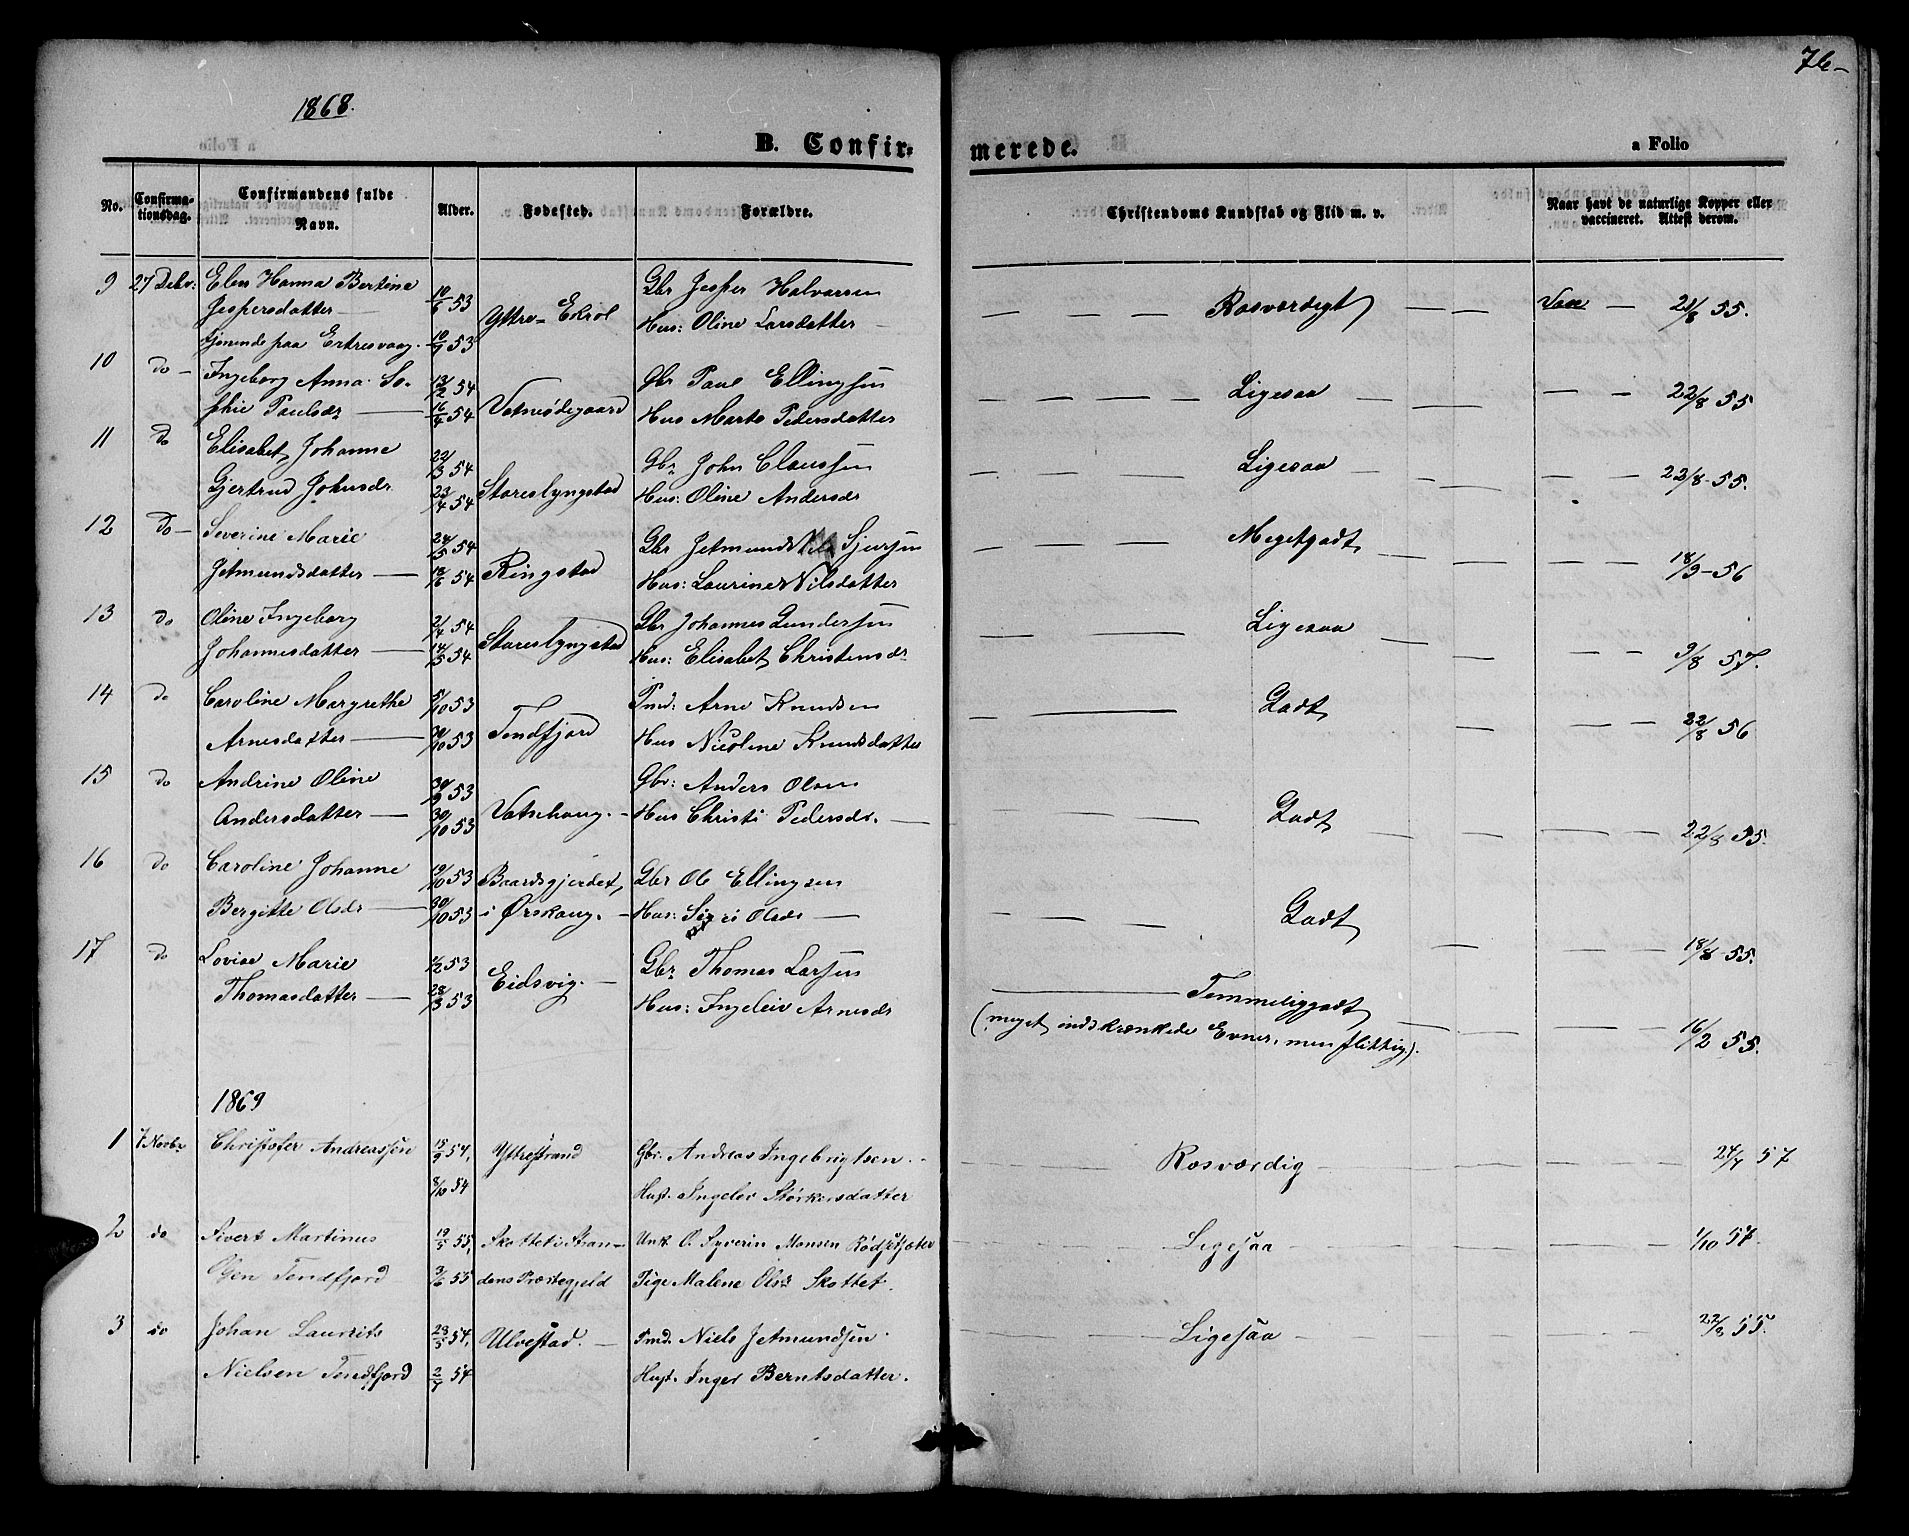 76-
1868.
B. Confir-merede.
a Folio
No. Confirmationsdag. Confirmandens fulde Navn. Alder. Fødested. Forældre. Christendoms Kundskab og Flid m. v. Naar havt de naturlige Kopper eller vaccineret. Attest derom.
9 27 Debr: Elen Hanna Bertine 10/6 53 Yttre- Gbr Jesper Halvarsen Rosværdigt Vacc 21/8 55.
Jespersdatter Hus: Oline Larsdatter
tjenende paa Ertresvaag. 10/7 53
10 do - Ingeborg Anna So- 13/2 54 Gbr Paul Ellingsen Ligesaa 22/8 55
phie Paulsdr 16/4 54 Vatnødegaard Hus Marte Pedersdatter
11 Do Elisabet Johanne 22/3 54 Gbr John Claussen Ligesaa 22/8-55.
Gjertrud Johnsdr 23/4 54 Storeslyngstad Hus: Oline Andersdr
12 Do- Severine Marie 24/5 54 Gbr Jetmund Sjursen Megetgodt 18/9-56
Jetmundsdatter 18/6 54 Ringstad Hus: Laurine Nilsdatter
13 Do Oline Ingeborg 2/4 54 Gbr Johannes Gundersen Ligesaa 9/8 57.
Johannesdatter 14/5 54 Storeslyngstad Hus: Elisabet Christensdr
14 do Caroline Margrethe 5/10 53 Pmd: Arne Knudsen Godt 22/8 56
Arnesdatter 30/10 53 Tendfjord Hus Nicoline Knudsdatter
15 Do Andrine Oline 30/9 53 Gbr: Anders Olsen Godt 22/8 55.
Andersdatter 30/10 53 Vatnehaug. - Hus Christi Pedersdr.
16 Do Caroline Johanne 19/10 53 Baardsgjerdet, Gbr Ole Ellingsen Godt 18/8 55.
Bergitte Olsdr 30/10 53 i Ørskoug. - Hus: Sigri Olsdr
17 do Lovise Marie 1/2 53 Eidsvig. - Gbr Thomas Larsen Temmeliggodt
Thomasdatter 28/3 53 Hus: Ingeleiv Arnesdr (meget indskrænkede Evner, men flittig). 16/2 55.
1869
1 7 Novbr Christofer Andreassen 18/9 54, Yttrestrand Gbr. Andreas Ingebrigtsen. Rosværdig 24/7 57
8/10 54 Hust. Ingelev Størkersdatter
2 do Sivert Martinus 19/5 55, Skottet i Stran- Unk. O. Syverin Monsen Rødsetsæter Ligesaa 1/10 57.
Tendfjord 3/6 55 dens Præstegjeld Pige Malene Olsdr Skottet.
3 do Johan Laurits 28/5 54, Ulvestad. - Pmd. Niels Jetmundsen. Ligesaa 22/8 55.
Nielsen Tendfjord 2/7 54 Hust. Inger Berntsdatter.